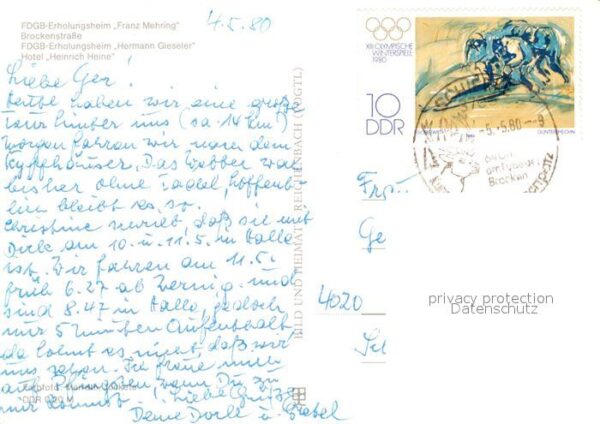 FDGB-Erholungsheim „Franz Mehring"
Brockenstraße
FDGB-Erholungsheim „Hermann Gieseler"
Hotel „Heinrich Heine"
4.5.80
Liebe Ger!
Heute haben wir eine große
Tour hinter uns (ca. 14 km!)
Morgen fahren wir nach dem
Kyffhäuser. Das Wetter war
bisher ohne Tadel, hoffent-
lich bleibt es so.
Christine schrieb, daß sie mit
Dirk am 10. u. 11.5. in Halle
ist. Wir fahren am 11.5.
früh 6.27 ab Wernig. und
sind 8.47 in Halle, jedoch
nur 5 Minuten Aufenthalt,
da lohnt es nicht, daß wir
uns sehen. Ich freue mich
auf Pfingsten, wenn Du zu
mir kommst. Liebe Grüße
Deine Dorle u.
DDR 0,20 M
BILD UND HEIMAT REICHENBACH (VOGTL)
XIII. OLYMPISCHE
WINTERSPIELE
1980
10
DDR
-5.-5.80--9
Brocken
Frau
Ge
4020
Sch
privacy protection
Datenschutz